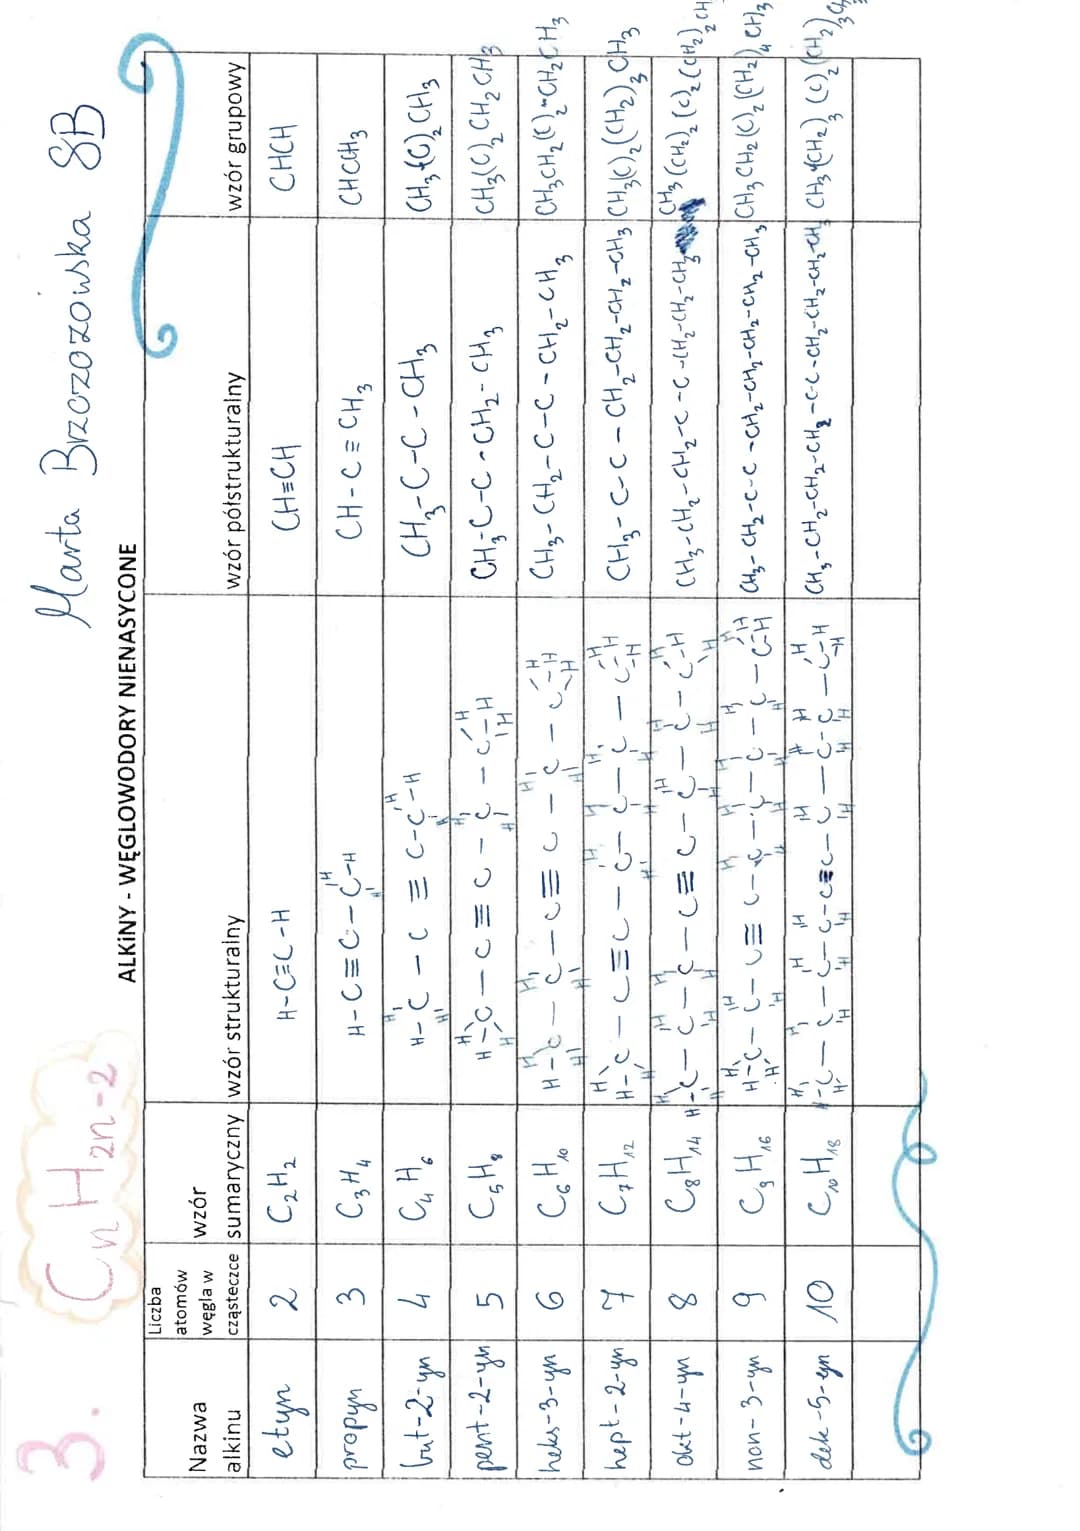 3. CnH2n-2
Marta Brzozowska 8B
ALKiNY - WĘGLOWODORY NIENASYCONE
Nazwa alkinu | Liczba atomów węgla w cząsteczce | wzór sumaryczny | wzór strukturalny | wzór półstrukturalny | wzór grupowy
etyn | 2 | C2H2 | H-C≡C-H | CH≡CH | CHCH
propyn | 3 | C3H4 | H-C≡C-C-H H H | CH-C≡CH3 | CHCCH3
but-2-yn | 4 | C4H6 | H-C-C≡C-C-H H H H H | CH3-C-C-CH3 | CH3(C)2CH3
pent-2-yn | 5 | C5H8 | H-C-C≡C-C-C-H H H H H H H | CH3-C-C-CH2-CH3 | CH3(C)2CH2CH3
heks-3-yn | 6 | C6H10 | H-C-C-C≡C-C-C-H | CH3-CH2-C-C-CH2-CH3 | CH3CH2(C)2CH2CH3
hept-2-yn | 7 | C7H12 | H-C-C≡C-C-C-C-C-H | CH3-C-C-CH2-CH2-CH2-CH3 | CH3(C)2(CH2)3CH3
okt-4-yn | 8 | C8H14 | H-C-C-C-C≡C-C-C-C-H | CH3-CH2-CH2-C-C-CH2-CH2-CH3 | CH3(CH2)2(C)2(CH2)2CH
non-3-yn | 9 | C9H16 | H-C-C-C≡C-C-C-C-C-C-H | CH3-CH2-C-C-CH2-CH2-CH2-CH2-CH3 | CH3CH2(C)2(CH2)4CH3
dek-5-yn | 10 | C10H18 | H-C-C-C-C-C≡C-C-C-C-C-H | CH3-CH2-CH2-CH2-C-C-CH2-CH2-CH2-CH3 | CH3(CH2)3(C)2(CH2)3CH3